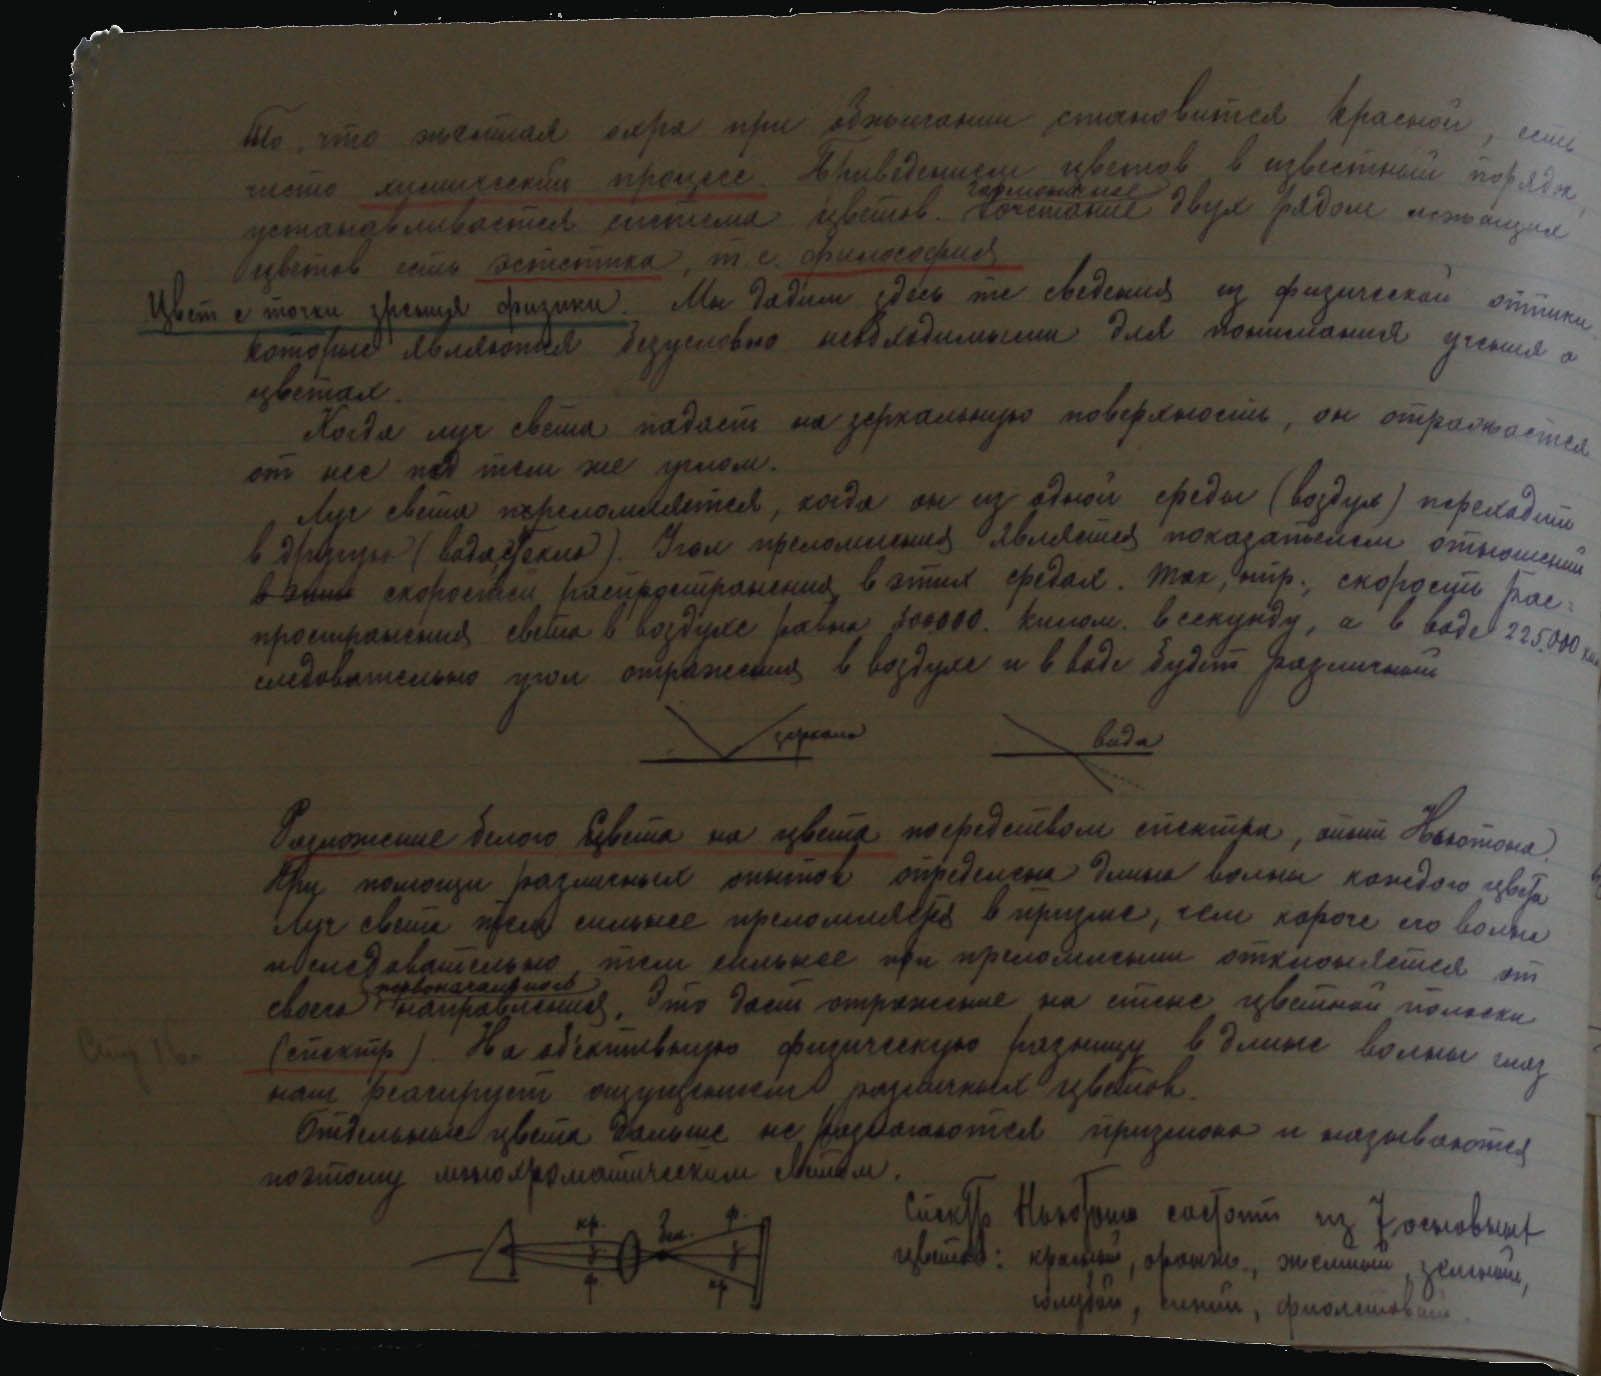 То, что желтая охра при обжигании становится красной, есть
чисто химический процесс. Приведением цветов в известный порядок,
устанавливается система цветов. гармоничное сочетание двух рядом лежащих
цветов есть эстетика, т.е. философия
Цвет с точки зрения физики. Мы дадим здесь те сведения из физической оптики
которые являются безусловно необходимыми для понимания учения о
цветах.
Когда луч света падает на зеркальную поверхность, он отражается
от нее под тем же углом.
Луч света преломляется, когда он из одной среды (воздух) переходит
в другую (вода, стекло). Угол преломления является показателем отношений
в этих скоростей распространения в этих средах. Так, нпр., скорость рас-
пространения света в воздухе равна 300000 килом. в секунду, а в воде 225.000 кил
следовательно угол отражения в воздухе и в воде будет различный
зеркало
вода
Разложение белого цвета на цвета посредством спектра, опыт Ньютона.
При помощи различных опытов определена длина волны каждого цвета
Луч света тем сильнее преломляется в призме, чем короче его волна
последовательно тем сильнее при преломлении отклоняется от
своего первоначального направления. Это дает отражение на стене цветной полоски
(спектр). На объективную физическую разницу в длине волны глаз
наш реагирует ощущением различных цветов.
Отдельные цвета дальше не разлагаются призмою и называются
поэтому монохроматическим светом.
Спектр Ньютона состоит из 7 основных
цветов: красный, оранж., желтый, зеленый,
голубой, синий, фиолетовый.
кр.
ф.
ф.
кр
Стр 16.